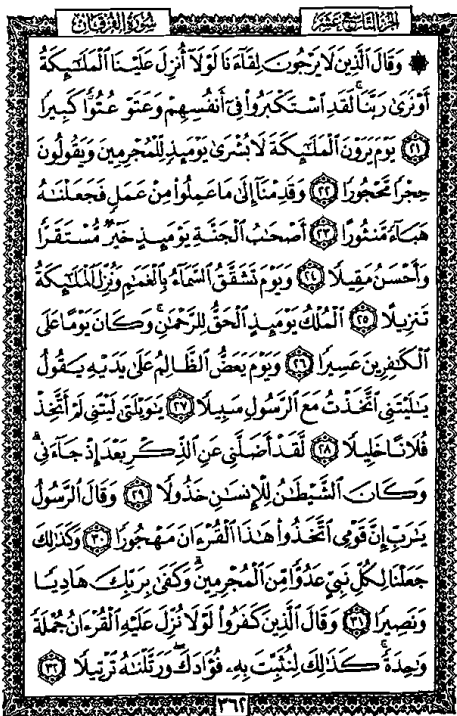 الجزء التاسع عشر سورة الفرقان
۞ وَقَالَ ٱلَّذِينَ لَا يَرْجُونَ لِقَآءَنَا لَوْلَآ أُنزِلَ عَلَيْنَا ٱلْمَلَٰٓئِكَةُ
أَوْ نَرَىٰ رَبَّنَا ۗ لَقَدِ ٱسْتَكْبَرُوا۟ فِىٓ أَنفُسِهِمْ وَعَتَوْ عُتُوًّا كَبِيرًا
﴿٢١﴾ يَوْمَ يَرَوْنَ ٱلْمَلَٰٓئِكَةَ لَا بُشْرَىٰ يَوْمَئِذٍ لِّلْمُجْرِمِينَ وَيَقُولُونَ
حِجْرًا مَّحْجُورًا ﴿٢٢﴾ وَقَدِمْنَآ إِلَىٰ مَا عَمِلُوا۟ مِنْ عَمَلٍ فَجَعَلْنَٰهُ
هَبَآءً مَّنثُورًا ﴿٢٣﴾ أَصْحَٰبُ ٱلْجَنَّةِ يَوْمَئِذٍ خَيْرٌ مُّسْتَقَرًّا
وَأَحْسَنُ مَقِيلًا ﴿٢٤﴾ وَيَوْمَ تَشَقَّقُ ٱلسَّمَآءُ بِٱلْغَمَٰمِ وَنُزِّلَ ٱلْمَلَٰٓئِكَةُ
تَنزِيلًا ﴿٢٥﴾ ٱلْمُلْكُ يَوْمَئِذٍ ٱلْحَقُّ لِلرَّحْمَٰنِ ۚ وَكَانَ يَوْمًا عَلَى
ٱلْكَٰفِرِينَ عَسِيرًا ﴿٢٦﴾ وَيَوْمَ يَعَضُّ ٱلظَّالِمُ عَلَىٰ يَدَيْهِ يَقُولُ
يَٰلَيْتَنِى ٱتَّخَذْتُ مَعَ ٱلرَّسُولِ سَبِيلًا ﴿٢٧﴾ يَٰوَيْلَتَىٰ لَيْتَنِى لَمْ أَتَّخِذْ
فُلَانًا خَلِيلًا ﴿٢٨﴾ لَّقَدْ أَضَلَّنِى عَنِ ٱلذِّكْرِ بَعْدَ إِذْ جَآءَنِى ۗ
وَكَانَ ٱلشَّيْطَٰنُ لِلْإِنسَٰنِ خَذُولًا ﴿٢٩﴾ وَقَالَ ٱلرَّسُولُ
يَٰرَبِّ إِنَّ قَوْمِى ٱتَّخَذُوا۟ هَٰذَا ٱلْقُرْءَانَ مَهْجُورًا ﴿٣٠﴾ وَكَذَٰلِكَ
جَعَلْنَا لِكُلِّ نَبِىٍّ عَدُوًّا مِّنَ ٱلْمُجْرِمِينَ ۗ وَكَفَىٰ بِرَبِّكَ هَادِيًا
وَنَصِيرًا ﴿٣١﴾ وَقَالَ ٱلَّذِينَ كَفَرُوا۟ لَوْلَا نُزِّلَ عَلَيْهِ ٱلْقُرْءَانُ جُمْلَةً
وَٰحِدَةً ۚ كَذَٰلِكَ لِنُثَبِّتَ بِهِۦ فُؤَادَكَ ۖ وَرَتَّلْنَٰهُ تَرْتِيلًا ﴿٣٢﴾
٣٦٢